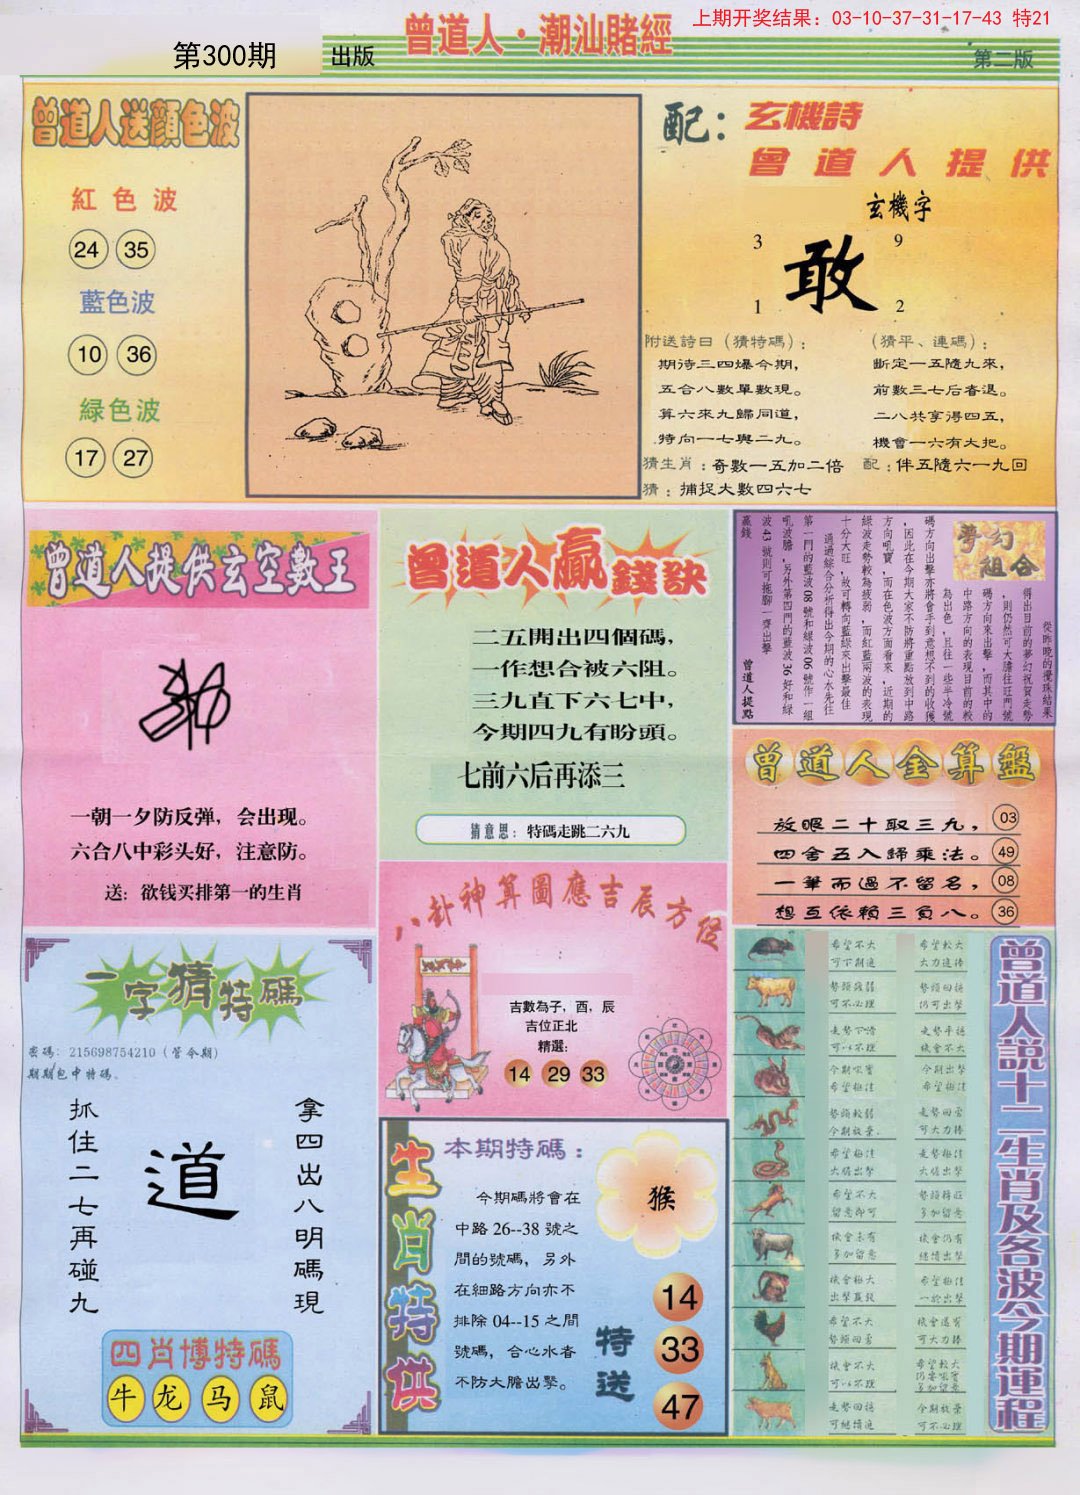 上期开奖结果：03-10-37-31-17-43 特21
第300期
出版
曾道人·潮汕賭經
第二版
曾道人送顏色波
紅色波
24 35
藍色波
10 36
緑色波
17 27
配：玄機詩
曾道人提供
玄機字
3 9
敢
1 2
附送詩曰（猜特碼）：
期待三四爆今期，
五合八數單數現。
算六來九歸同道，
特向一七與二九。
猜生肖：奇數一五加二倍
猜：捕捉大數四六七
（猜平、連碼）：
斷定一五隨九來，
前數三七后者退。
二八共享得四五，
機會一六有大把。
配：伴五隨六一九回
曾道人提供玄空數王
一朝一夕防反弹，会出现。
六合八中彩头好，注意防。
送：欲钱买排第一的生肖
曾道人贏錢訣
二五開出四個碼，
一作想合被六阻。
三九直下六七中，
今期四九有盼頭。
七前六后再添三
猜意思：特碼走跳二六九
夢幻組合
從昨晚的攪珠結果
得出目前的夢幻祝賀走勢
，則仍然可大膽往旺門號
碼方向來出擊，而其中的
中路方向的表現目前的較
為出色，且往一些半冷號
碼方向出擊亦將會手到意想不到的收獲
，因此在今期大家不防將重點放到中路
方向吼寶，而在色波方面看來，近期的
綠波走勢較為疲弱，而紅藍兩波的表現
十分大旺，故可轉向藍綠來出擊最佳
通過綜合分析得出今期的心水先往
第一門的藍波08號和綠波06號作一組
吼波膽，另外第四門的藍波36好和綠
波43號則可拖腳一齊出擊
贏錢
曾道人提點
曾道人金算盤
放眼二十取三九，03
四舍五入歸乘法。49
一筆而過不留名，08
想互依賴三負八。36
一字猜特碼
密碼：215698754210（管令期）
期期包中特碼、
抓住二七再碰九
道
拿四出八明碼現
四肖博特碼
牛 龙 马 鼠
八卦神算圖應吉辰方位
吉數為子，酉，辰
吉位正北
精選：
14 29 33
生肖特供
本期特碼：
今期碼將會在
中路26--38號之
間的號碼，另外
在細路方向亦不
排除04--15之間
號碼，合心水者
不防大膽出擊。
猴
特送
14
33
47
曾道人說十二生肖及各波今期運程
希望不大
可下期進
希望較大
大力追捧
勢頭疲弱
可不必理
勢頭回穩
仍可出擊
走勢下滑
可以不理
走勢平穩
機會不大
今期吼寶
希望極佳
今期出擊
希望極佳
勢頭較弱
今期放棄.
走勢回雷
可大力捧
希望極佳
大膽出擊
走勢極佳
大膽出擊
希望不大
留意即可
勢頭轉旺
多加留意
機會未有
多加留意
機會仍有
繼續出擊
機會極大
出擊贏錢
希望極佳
一於出擊
希望不大
勢頭回雷
機會還有
可大力捧
機會不大
可以不理
希望較大
仍要吼實
多加留意
走勢回穩
可繼續進
今期放棄
可不必理